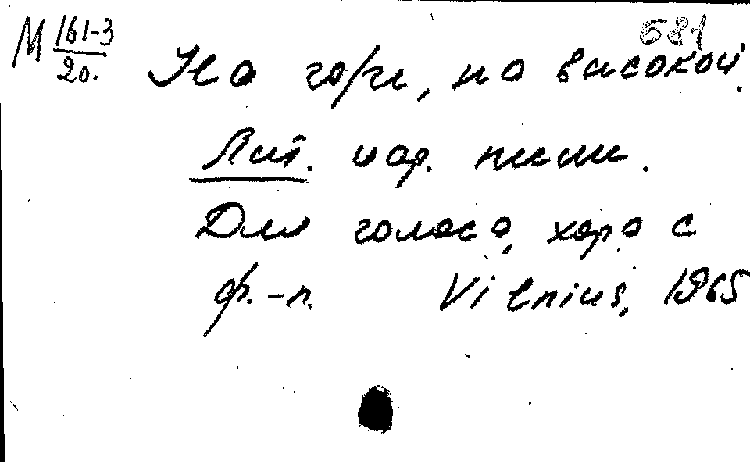 М 161-3/20. 681
На горе, на високой.
Лит. нар. песни.
Для голоса, хора с
ф.-п. Vilnius, 1965